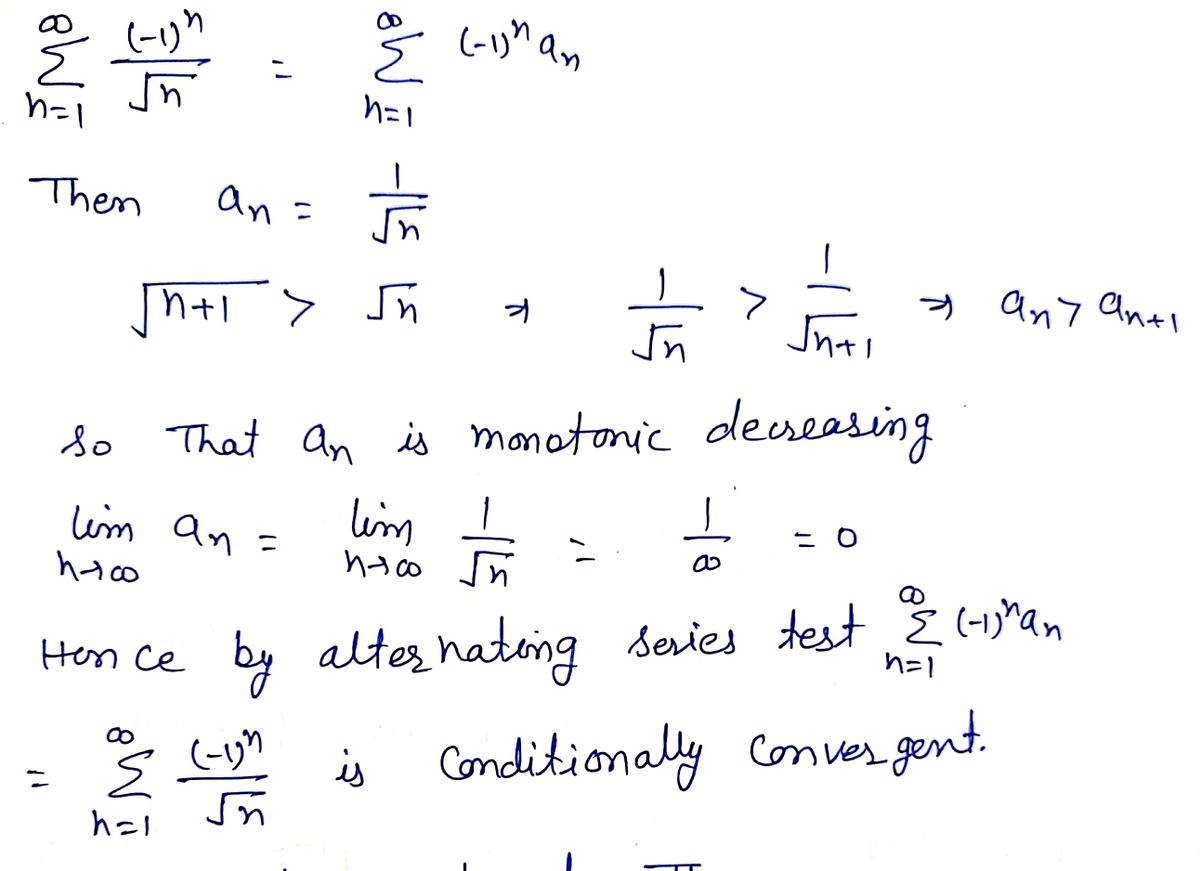 ∞ Σ n=1 (-1)^n / √n = ∞ Σ n=1 (-1)^n a_n
Then a_n = 1/√n
√n+1 > √n ⇒ 1/√n > 1/√n+1 ⇒ a_n > a_n+1
so That a_n is monotonic decreasing
lim n→∞ a_n = lim n→∞ 1/√n = 1/∞ = 0
Hence by alternating series test ∞ Σ n=1 (-1)^n a_n
= ∞ Σ n=1 (-1)^n / √n is Conditionally Convergent.